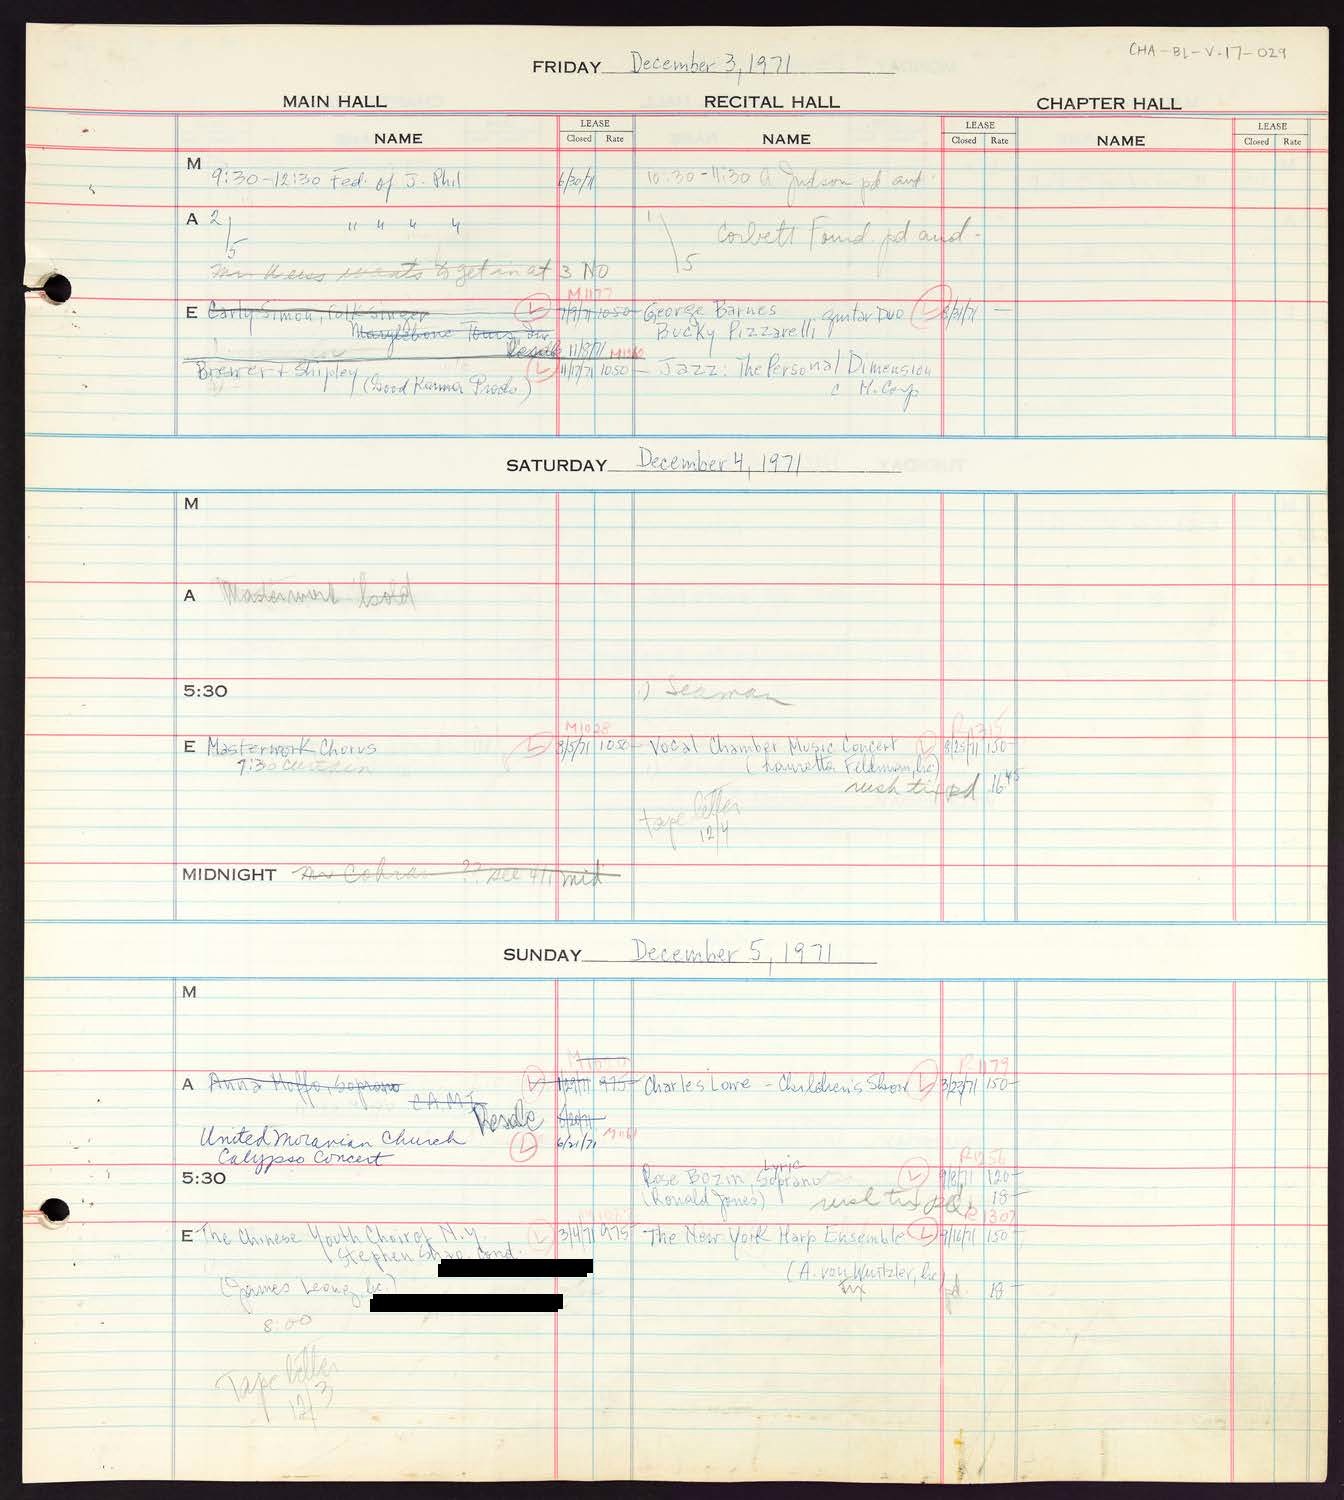 CHA-BL-V-17-029
FRIDAY December 3, 1971
MAIN HALL RECITAL HALL CHAPTER HALL
NAME LEASE Closed Rate NAME LEASE Closed Rate NAME LEASE Closed Rate
M 9:30-12:30 Fed. of J. Phil 6/30/71 10:30-11:30 A Judson pd aud
A 2/5 " " " " 1/5 Corbett Found. pd aud-
wants to get in at 3 NO
M1177
E Carly Simon, Folk Singer L 7/9/71 1050- George Barnes guitar Duo L 8/31/71 -
Marylebone Tours, Inc Bucky Pizzarelli
Resale 11/3/71
Brewer + Shipley L 11/17/71 1050- Jazz: The Personal Dimension
(Good Karma Prods) c M. Corp
SATURDAY December 4, 1971
M
A Masterwork hold
5:30 Seaman
M1028 R1315
E Masterwork Chorus L 3/5/71 1050- Vocal Chamber Music Concert L 8/25/71 150-
7:30 curtain (Lauretta Feldman, lic)
rush tix pd 16.45
tape letter
12/4
MIDNIGHT Cohran ?? see 4/1 mid
SUNDAY December 5, 1971
M
R1179
A Anna Moffo, Soprano L 1/29/71 975- Charles Lowe - Children's Show L 3/23/71 150-
C.A.M.I. Resale
United Moravian Church L 6/21/71
Calypso Concert
R1256
5:30 Rose Bozin, Lyric Soprano L 9/8/71 120-
(Ronald Jones) rush tix pd 18-
R1307
E The Chinese Youth Choir of N.Y. L 3/4/71 975- The New York Harp Ensemble L 9/16/71 150-
Stephen Shao, Cond.
(James Leong, lic.) (A. von Wurtzler, lic)
tix pd. 18-
8:00
Tape letter
12/3